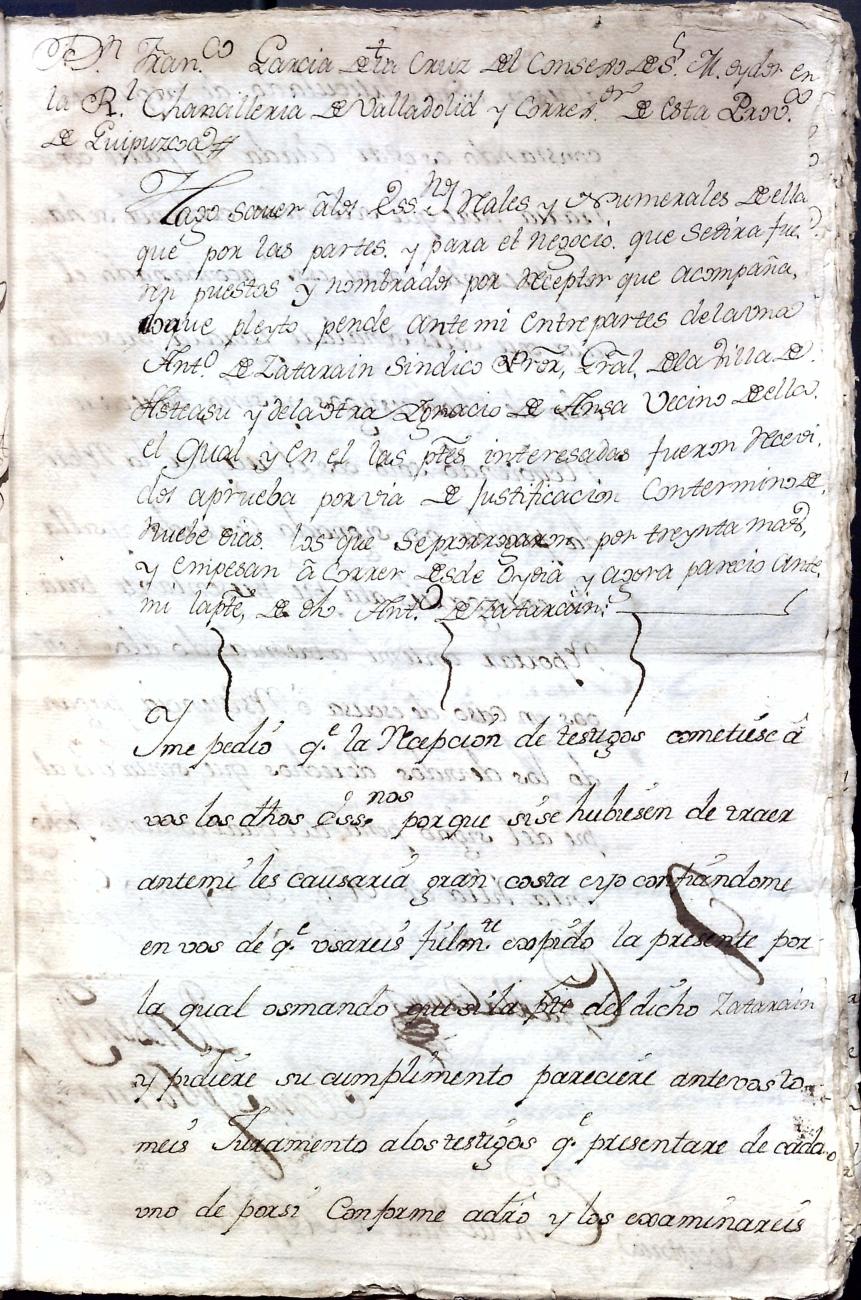 Dn Franco Garcia de la Cruz del Consejo de S. M. oydor en
la Rl Chancilleria de Valladolid y Correr.or de esta Prov.a
de Guipuzcoa
Hago saver âlos Essnos Rales y Numerales de ella
que por las partes, y para el negocio, que se dira fue
ren puestos y nombrados por Receptor que acompaña,
que pleyto pende ante mi entre partes de la una
Anto de Zatarain Sindico Pror, Gral, de la Villa de
Asteasu y de la otra Ygnacio de Ansa Vecino de ella,
el qual y en el las ptes interesadas fueron recevi
dos aprueba por via de Justificacion con termino de
Nuebe dias los que se prorrogaron por treynta mas,
y empesan â correr desde oy dia y agora parecio ante
mi la pte, de dho Anto de Zatarain:
Y me pedió q.e la Recepcion de testigos cometiese â
vos los dhos Essnos porque si se hubiesen de traer
ante mi les causaria gran costa e yo confiandome
en vos de q.e usareis fielm.te expido la presente por
la qual os mando que si la pte del dicho Zatarain
y pidiere su cumplimento pareciere ante vos to
meis Juramento a los testigos q.e presentare de cada
uno de por si Conforme a dro y los examinareis